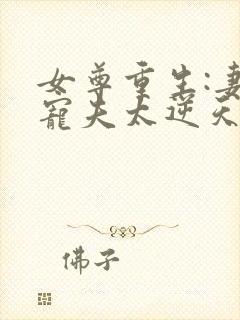 女尊重生:妻
寵夫太逆天
佛子